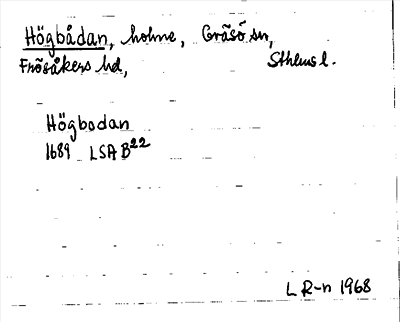 Högbådan, holme, Gräsö sn,
Frösåkers hd, Sthlms l.
Högbodan
1689 LSA B22
L R-n 1968